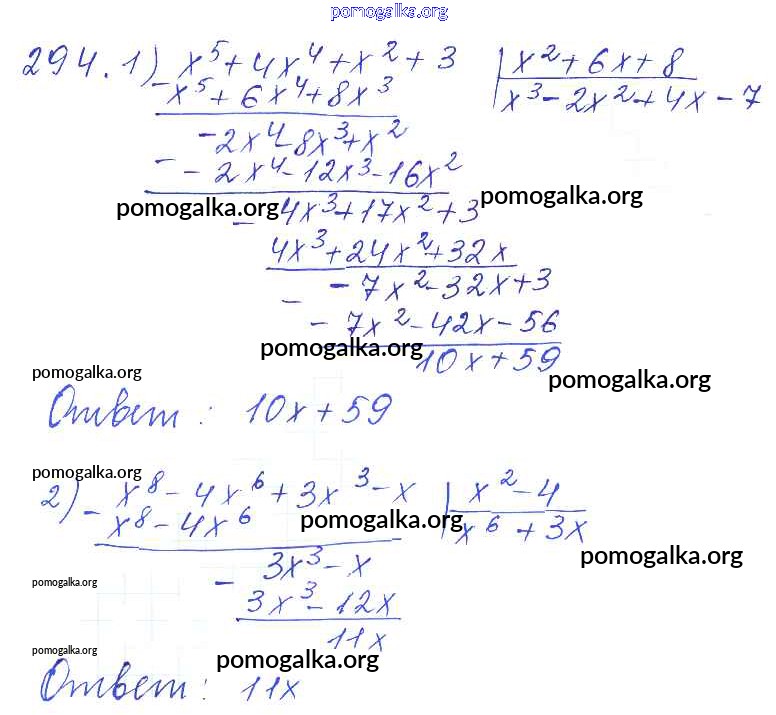 pomogalka.org
294. 1) x⁵ + 4x⁴ + x² + 3 | x² + 6x + 8
- x⁵ + 6x⁴ + 8x³ | x³ - 2x² + 4x - 7
-2x⁴ - 8x³ + x²
- - 2x⁴ - 12x³ - 16x²
pomogalka.org
pomogalka.org
- 4x³ + 17x² + 3
4x³ + 24x² + 32x
- - 7x² - 32x + 3
- 7x² - 42x - 56
pomogalka.org
10x + 59
pomogalka.org
pomogalka.org
Ответ : 10x + 59
pomogalka.org
2) - x⁸ - 4x⁶ + 3x³ - x | x² - 4
x⁸ - 4x⁶ | x⁶ + 3x
pomogalka.org
pomogalka.org
- 3x³ - x
pomogalka.org
3x³ - 12x
11x
pomogalka.org
pomogalka.org
Ответ : 11x